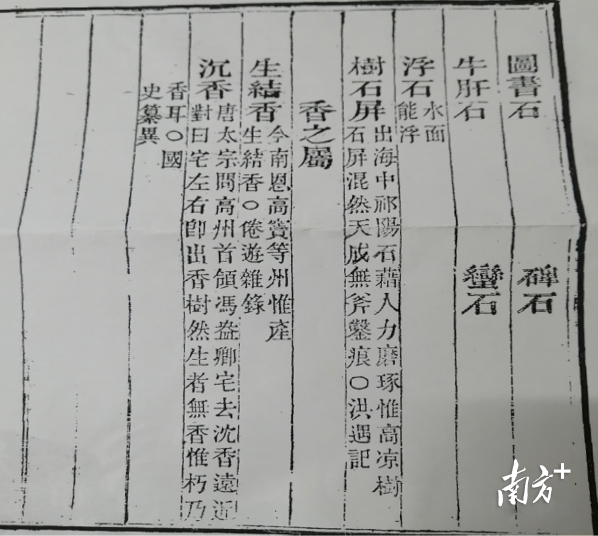 圖書石 碑石
牛肝石 蠻石
浮石 水面
能浮
樹石屏 出海中祁陽石藉人力磨琢惟高凉樹
石屏混然天成無斧鑿痕○洪遇記
香之屬
生結香 今南恩高竇等州惟產
生結香○倦遊雜錄
沉香 唐太宗問高州首領馮盎卿宅去沈香遠近
對曰宅左右卽出香樹然生者無香惟朽乃
香耳○國
史纂異
南方+